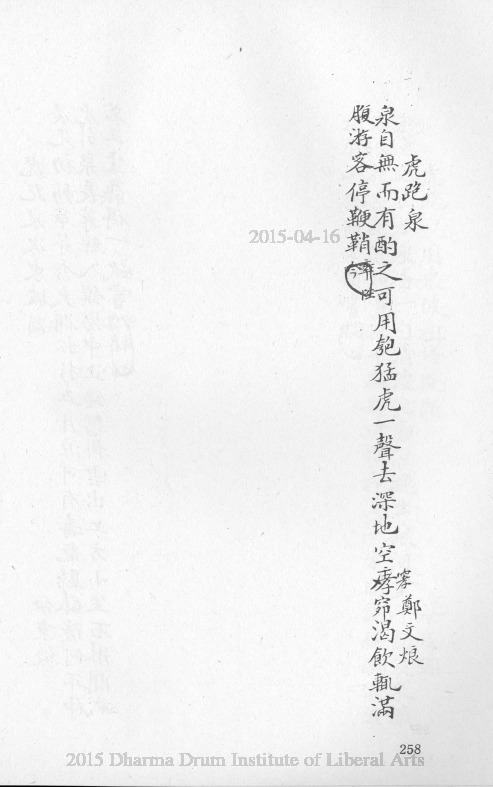 虎跑泉 鄭文烺
泉自無而有酌之可用匏猛虎一聲去深地空窌渴飲輒滿
腹游客停鞭鞘
2015-04-16
258
2015 Dharma Drum Institute of Liberal Arts